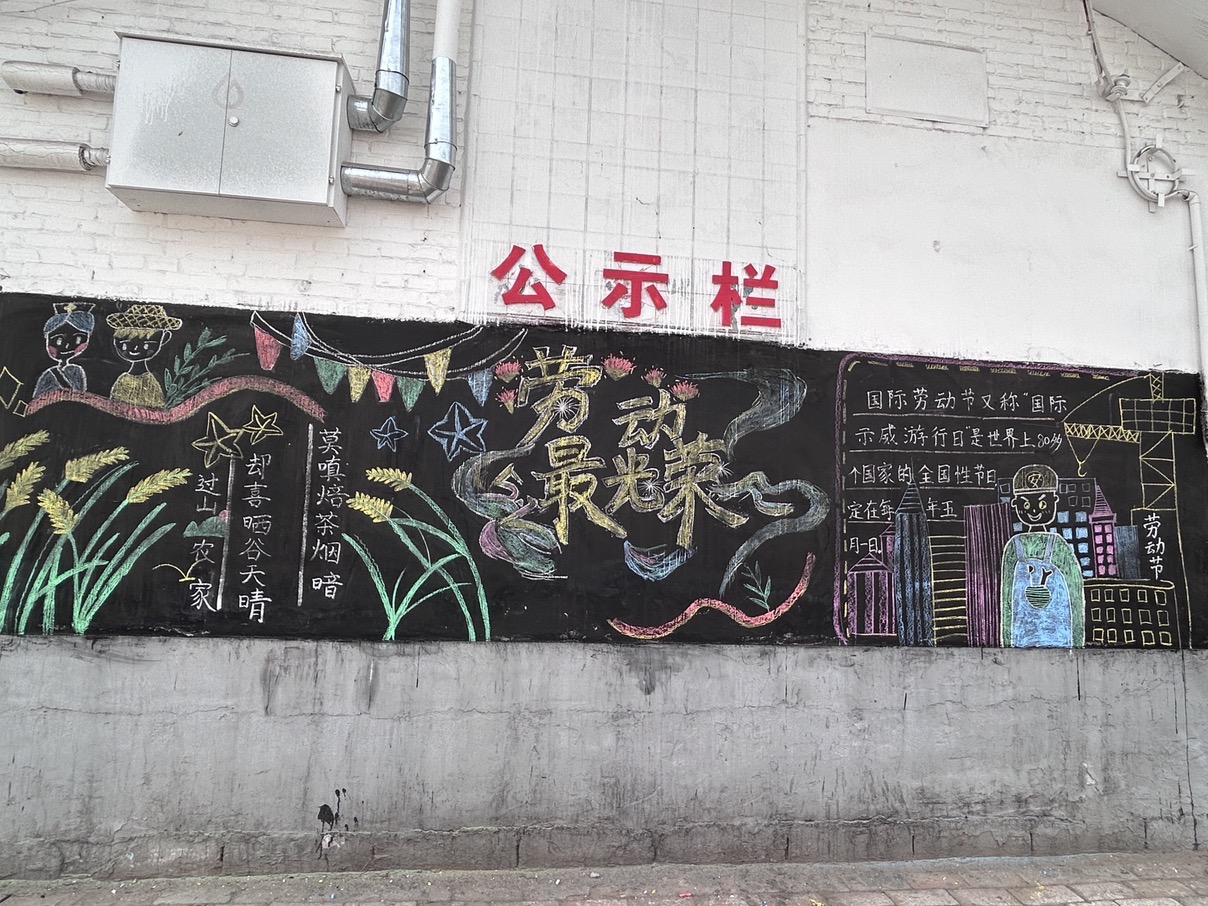 公示栏
莫嗔焙茶烟暗
却喜晒谷天晴
过山农家
劳动
最光荣
国际劳动节又称“国际
示威游行日”是世界上80多
个国家的全国性节日
定在每年五
月一日
劳动节